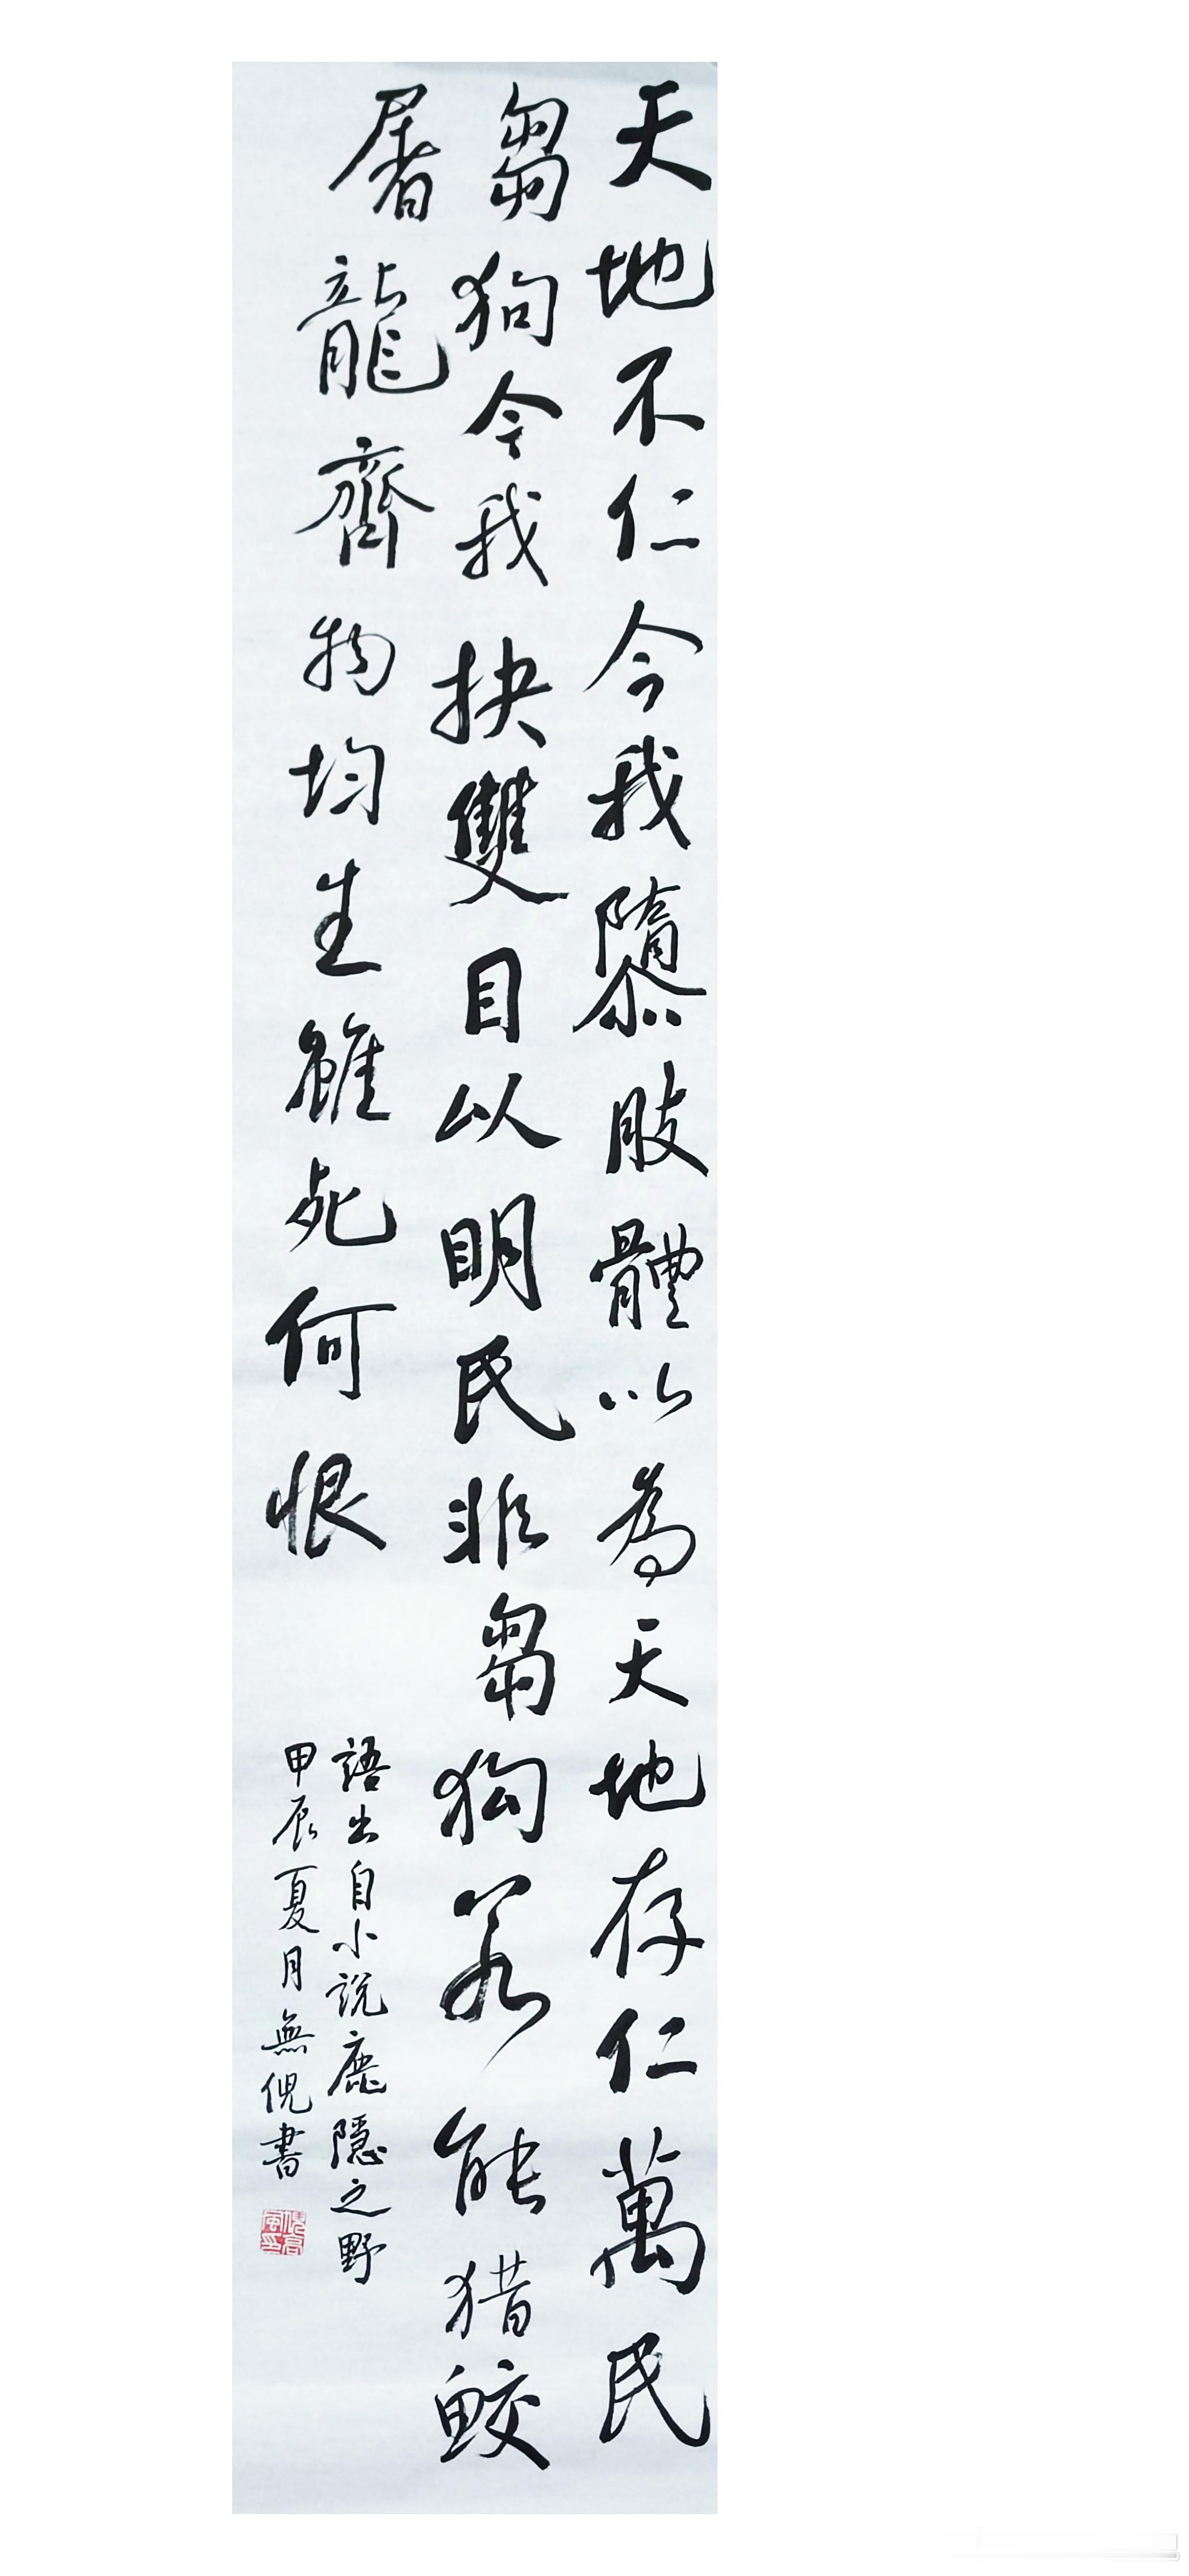 天地不仁今我隳肢體以為天地存仁萬民
芻狗今我抉雙目以明民非芻狗若能猎鲛
屠龍齊物均生雖死何恨
語出自小說鹿隱之野
甲辰夏月無倪書